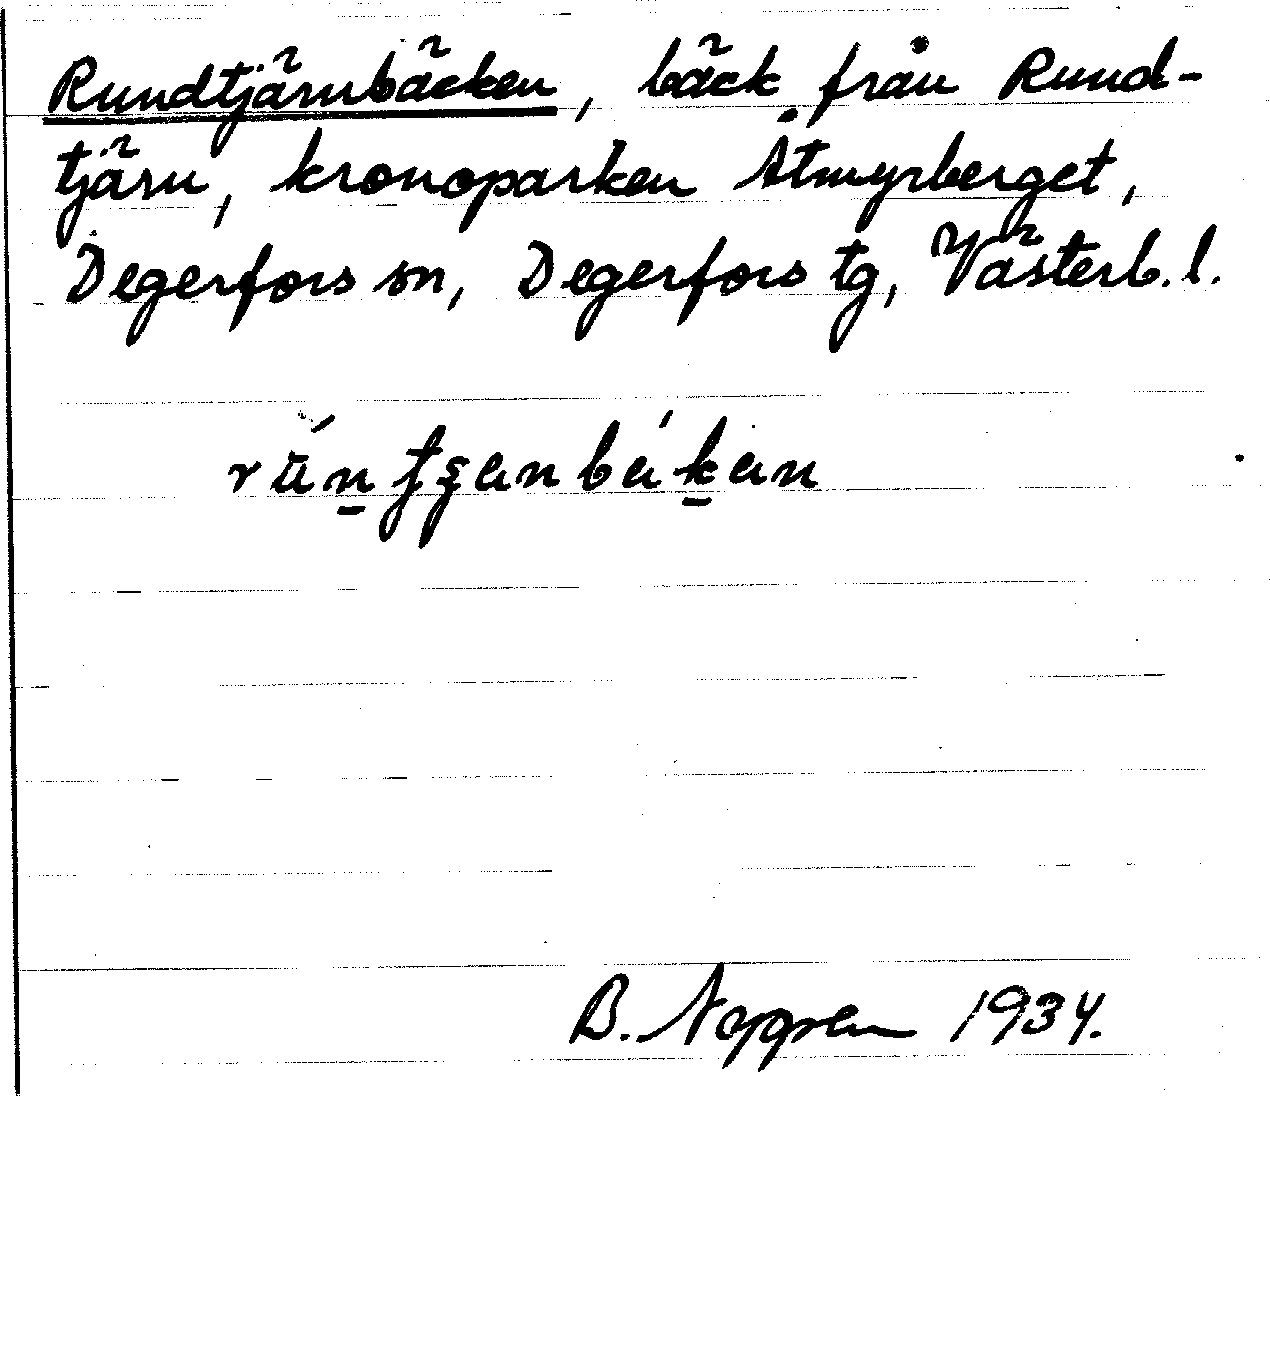 Rundtjärnbäcken, bäck från Rund-
tjärn, kronoparken Åtmyrberget,
Degerfors sn, Degerfors tg, Västerb. l.
B. Nygren 1934.